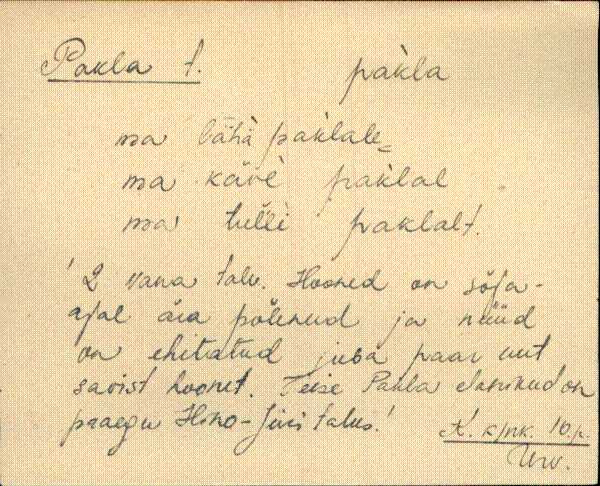 Pakla t. pakla
ma lähä paklale
ma käve paklal
ma tulli paklalt.
2 vana talu. Hooned on sõja-
ajal ära põlenud ja nüüd
on ehitatud juba paar uut
savist hoonet. Teise Pakla elanikud on
praegu Hino-Jüri talus.
K. 10.
Urv.